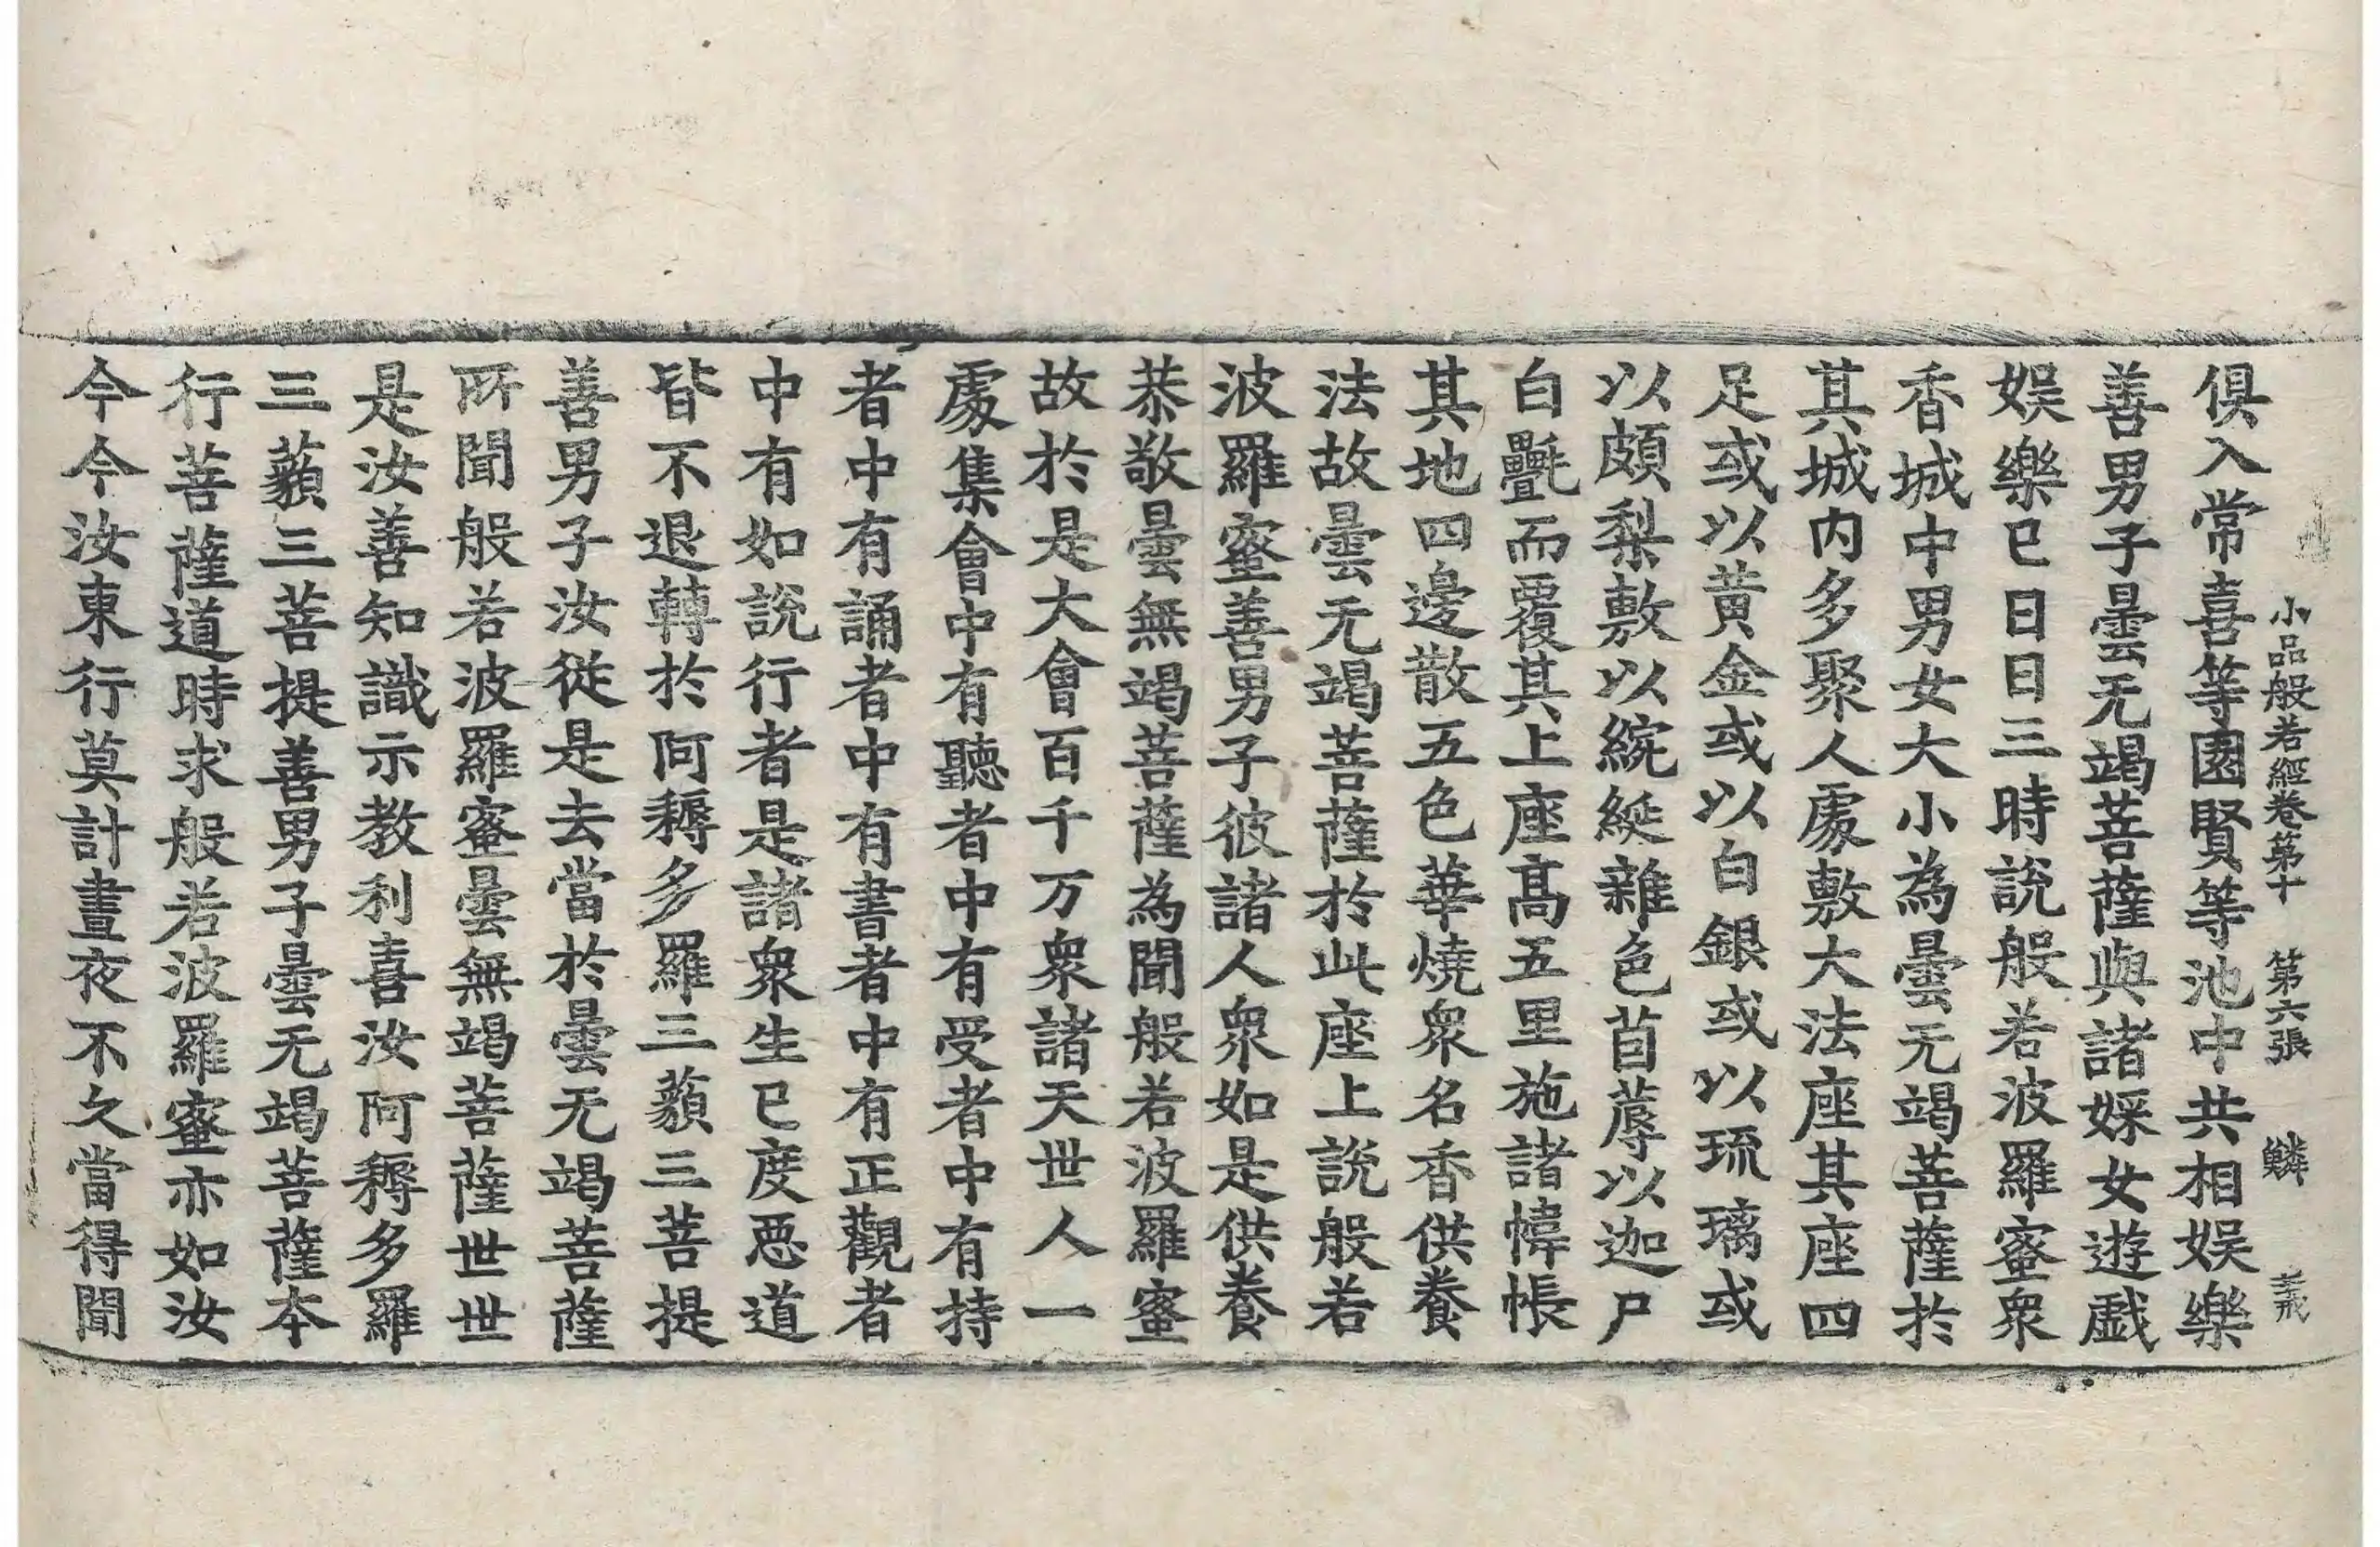 小品般若經卷第十　第六張　鱗
俱入常喜等園賢等池中共相娛樂
善男子曇无竭菩薩與諸婇女遊戲
娛樂已日日三時說般若波羅蜜衆
香城中男女大小為曇无竭菩薩於
其城内多聚人處敷大法座其座四
足或以黄金或以白銀或以琉璃或
以頗梨敷以綩綖雜色茵蓐以迦尸
白㲲而覆其上座髙五里施諸幃帳
其地四邊散五色華燒衆名香供養
法故曇无竭菩薩於此座上說般若
波羅蜜善男子彼諸人衆如是供養
恭敬曇無竭菩薩為聞般若波羅蜜
故於是大會百千万衆諸天世人一
處集會中有聽者中有受者中有持
者中有誦者中有書者中有正觀者
中有如說行者是諸衆生已度惡道
皆不退轉於阿耨多羅三藐三菩提
善男子汝從是去當於曇无竭菩薩
所聞般若波羅蜜曇無竭菩薩世世
是汝善知識示教利喜汝阿耨多羅
三藐三菩提善男子曇无竭菩薩本
行菩薩道時求般若波羅蜜亦如汝
今今汝東行莫計晝夜不久當得聞